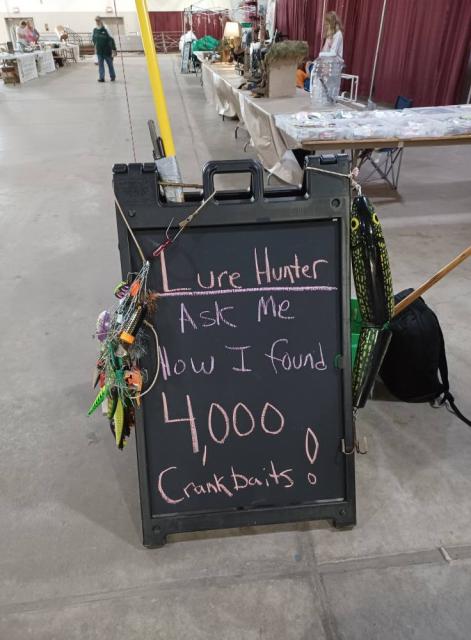 Lure Hunter
Ask Me
How I found
4,000
Crankbaits!